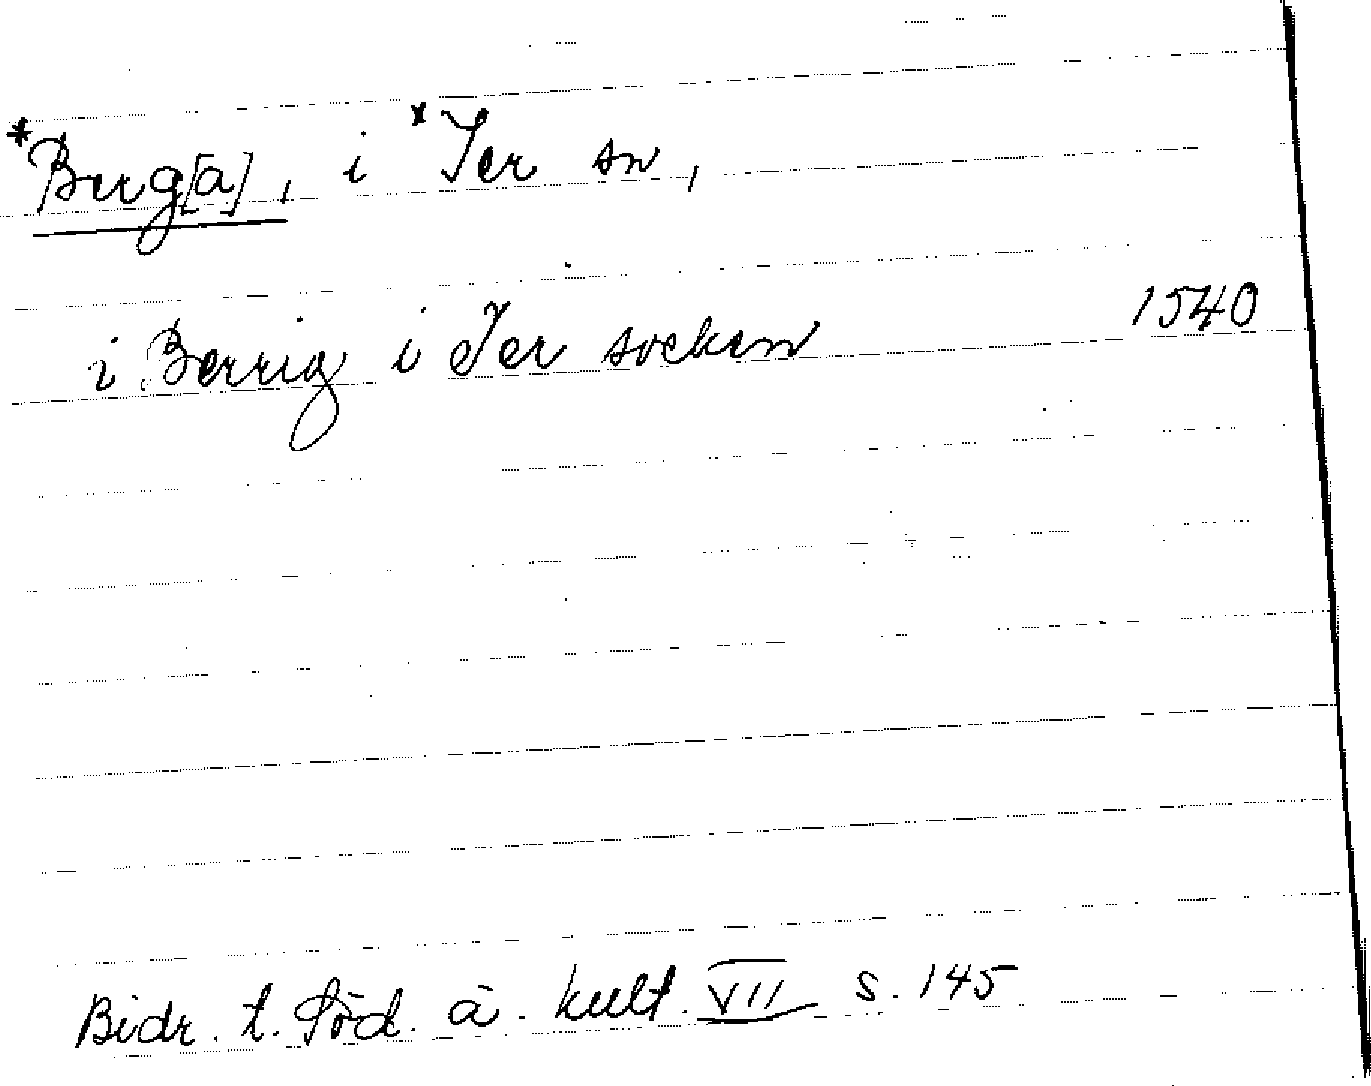 *Berg[a], i *Ier sn,
i Berrig i Ier socken 1540
Bidr. t. Söd. ä. kult. VII s. 145